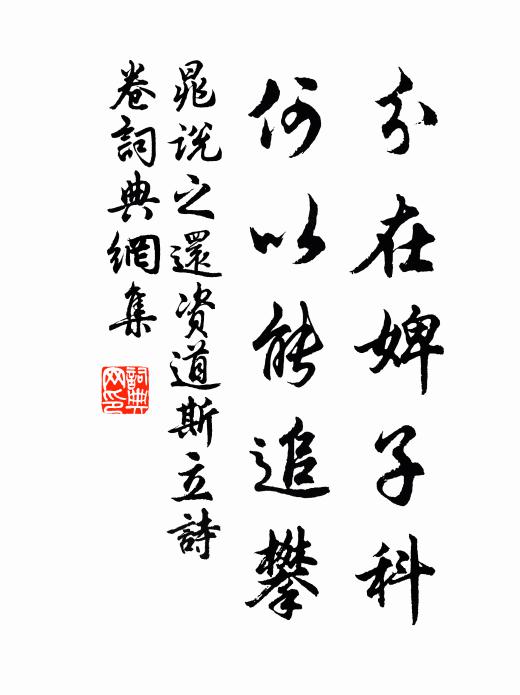 分在婢子科
何以能追攀
晁说之還资道斯立詩
卷詞典網集
詞典
网印